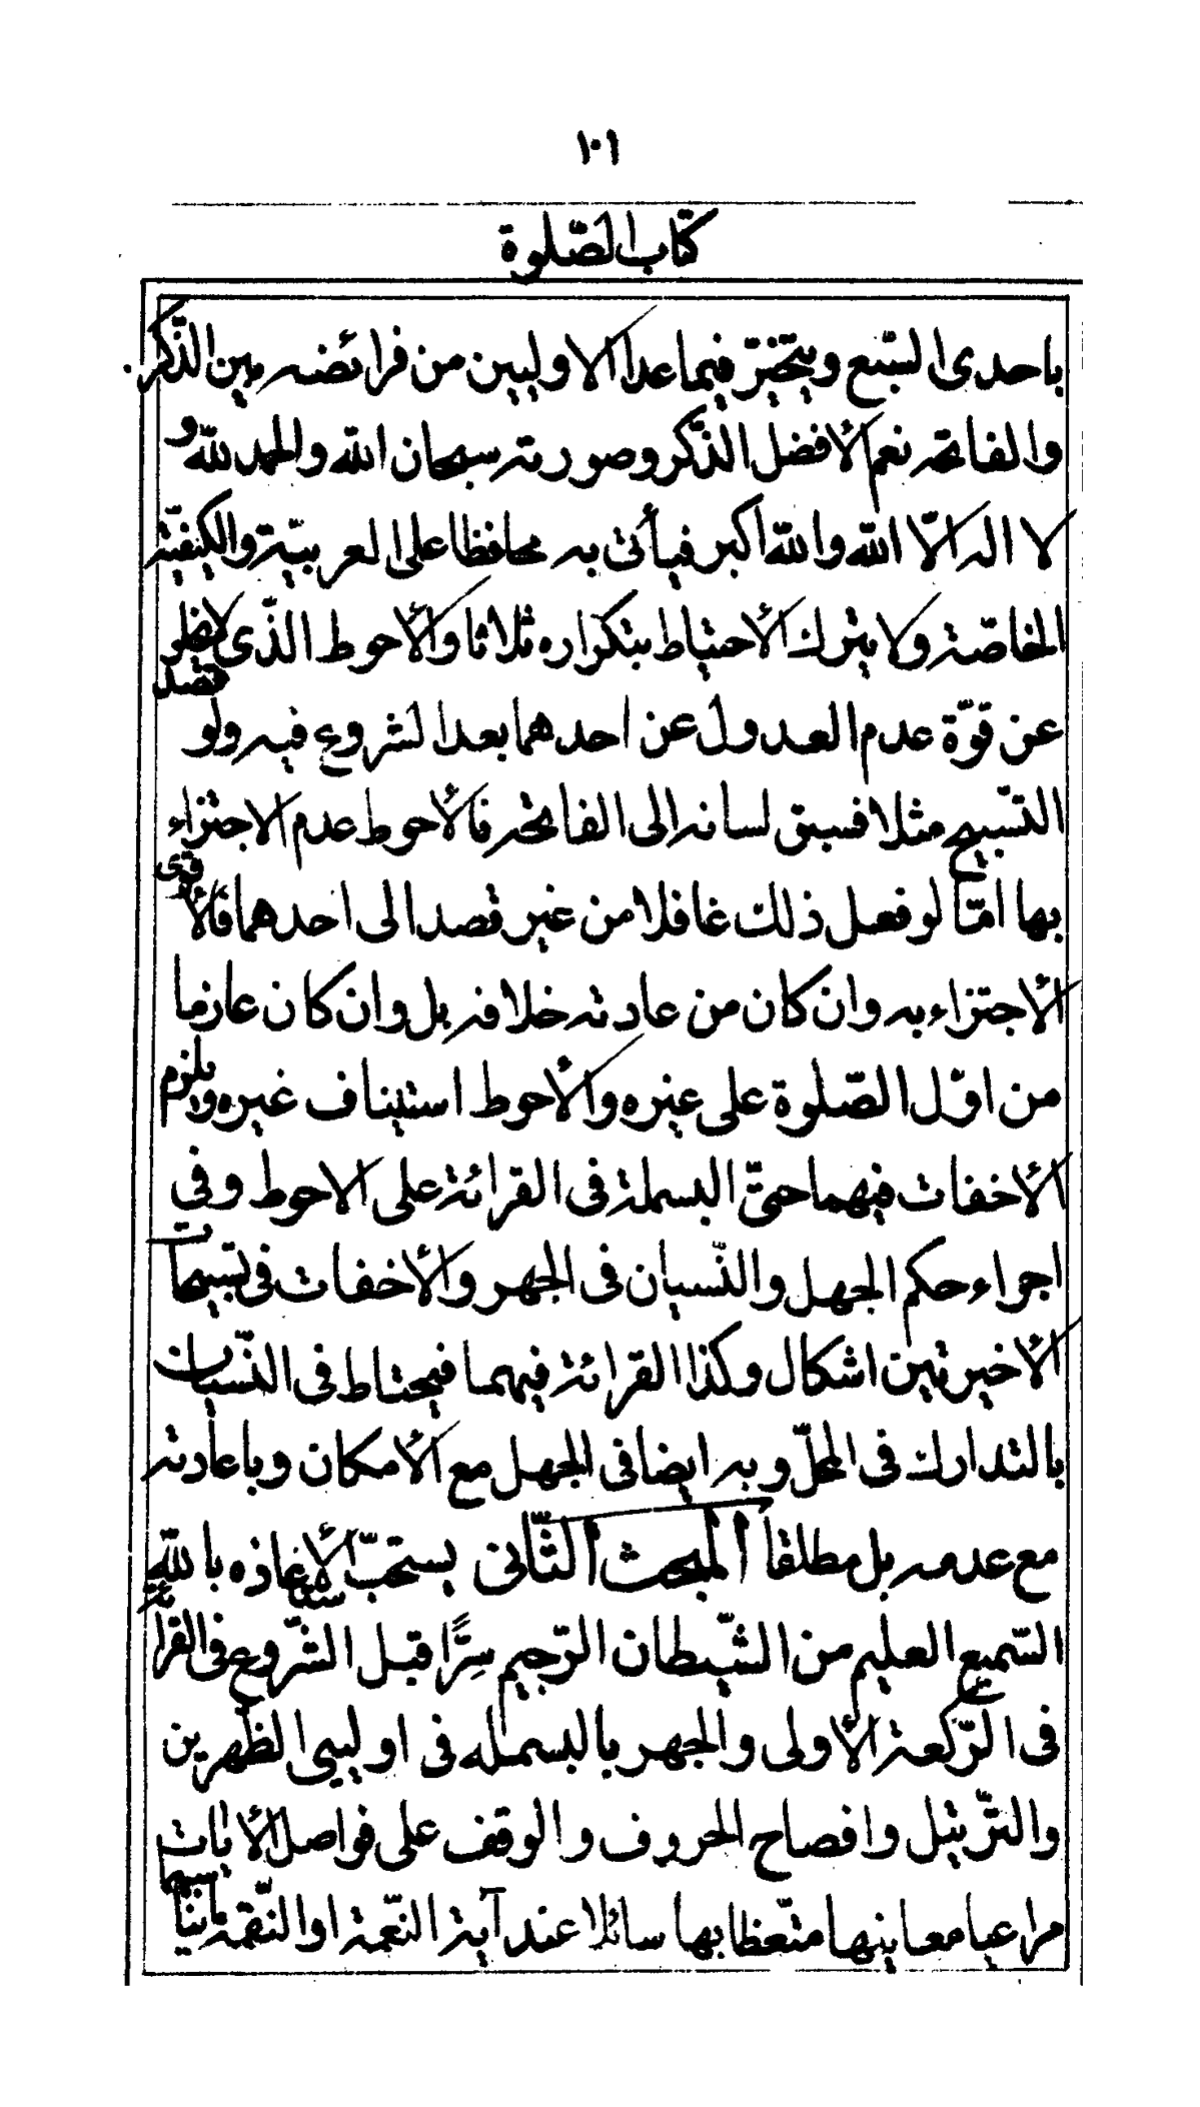 ١٠١
كتاب الصّلوة
باحدى السّبع ويتخيّر فيما عدا الاوليين من فرائضه بين الذّكر
والفاتحه نعم الأفضل الذّكر وصورته سبحان الله والحمد لله و
لا اله الّا الله والله اكبر فيأتى به محافظا على العربيّة والكيفيّة
الخاصّة ولا يترك الأحتياط بتكراره ثلاثا والأحوط الذّى لا يخلو
عن قوّة عدم العدول عن احدهما بعد الشروع فيه ولو قصد
التسّبيح مثلا فسبق لسانه الى الفاتحه فالأحوط عدم الاجتزاء
بها امّا لو فعل ذلك غافلا من غير قصد الى احدهما فالأقوى
الأجتزاء به وان كان من عادته خلافه بل وان كان عازما
من اوّل الصّلوة على غيره والأحوط استيناف غيره ويلزم
الأخفات فيهما حتىّ البسملة فى القرائة على الاحوط وفى
اجراء حكم الجهل والنّسيان فى الجهر والأخفات فى تسبيحات
الأخيرتين اشكال وكذا القرائة فيهما فيحتاط فى النّسيان
بالتدارك فى المحلّ وبه ايضا فى الجهل مع الأمكان وباعادته
مع عدمه بل مطلقا المبحث الثّانى يستحبّ الأستعاذه بالله
السّميع العليم من الشّيطان الرّجيم سِرًّا قبل الشّروع فى القرائة
فى الرّكعة الأولى والجهر بالبسمله فى اوليى الظّهرين
والترّتيل وافصاح الحروف والوقف على فواصل الأيات
مراعيا معاينها متّعظا بها سائلا عند آية النّعمة او النّقمة ما يناسبها